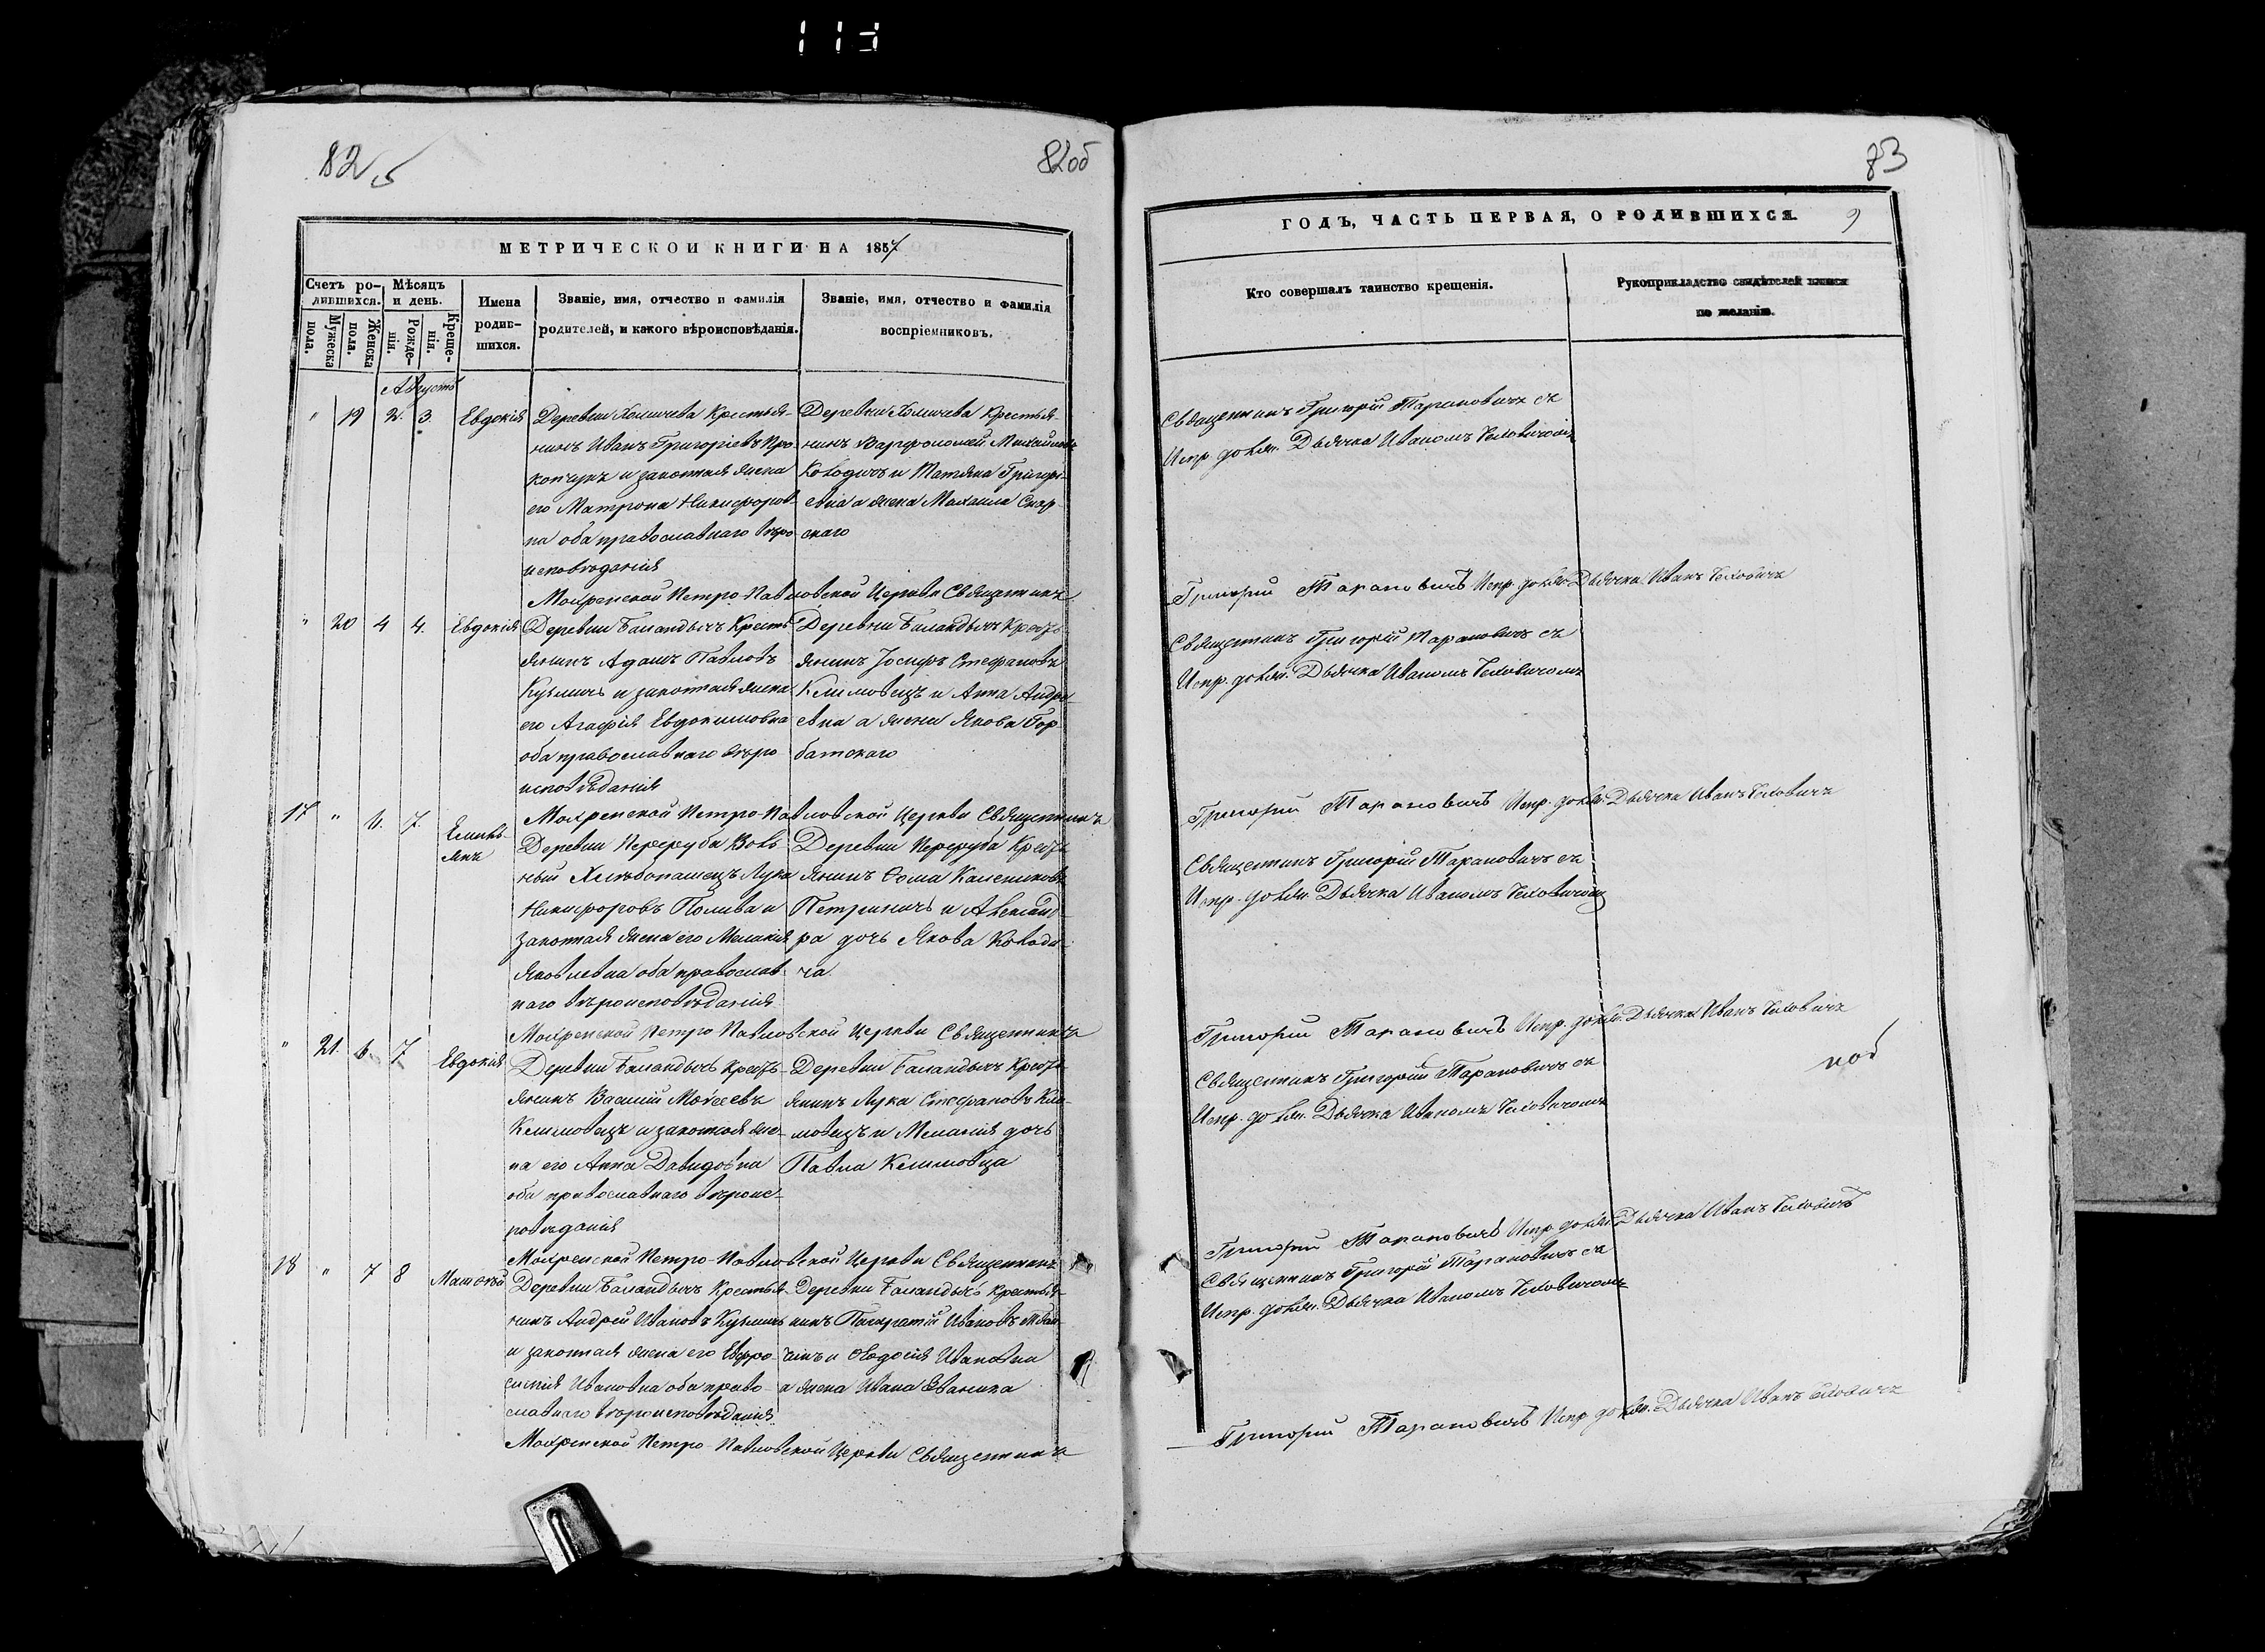 82
5
82об
МЕТРИЧЕСКОЙ КНИГИ НА 1857
Счетъ ро-
дившихся.
Мѣсяцъ
и день.
Мужеска
пола.
Женска
пола.
Рожде-
нія.
Креще-
нія.
Имена
родив-
шихся.
Званіе, имя, отчество и фамилія
родителей, и какого вѣроисповѣданія.
Званіе, имя, отчество и фамилія
воспріемниковъ.
Августъ
" 19 2. 3. Евдокія
Деревни Хомичева Крестья-
нинъ Иванъ Григоріевъ Про-
копчукъ и законная жена
его Матрона Никифоров-
на оба православнаго вѣро-
исповѣданія
Деревни Хомичева Крестья-
нинъ Варфоломей Михайловъ
Ководичъ и Татяна Григорі-
евна а жена Михаила Скор-
скаго
Мохренской Петро-Павловской Церкви Священникъ
" 20 4 4. Евдокія
Деревни Баландычъ Кресть-
янинъ Адамъ Павловъ
Кузьмичъ и законная жена
его Агафія Евдокимовна
оба православнаго вѣро
исповѣданія
Деревни Баландычъ Кресть-
янинъ Іосифъ Стефановъ
Климовецъ и Анна Андре-
евна а жена Якова Гор-
батскаго
Мохренской Петро-Павловской Церкви Священникъ
17 " 6. 7. Емиль-
янъ
Деревни Переруба Воль-
ный Хлѣбопашецъ Лука
Никифоровъ Полива и
законная жена его Меланія
Яковлевна оба православ-
наго вѣроисповѣданія
Деревни Переруба Кресть-
янинъ Ѳома Калениковъ
Петриничъ и Александ-
ра дочь Якова Ководи-
ча.
Мохренской Петро-Павловской Церкви Священникъ
" 21. 6. 7 Евдокія
Деревни Баландычъ Кресть-
янинъ Василій Моѵсеевъ
Климовецъ и законная же-
на его Анна Давидовна
оба православнаго вѣроис-
повѣданія
Деревни Баландычъ Кресть-
янинъ Лука Стефановъ Кли-
мовецъ и Меланія дочь
Павла Климовца
Мохренской Петро-Павловской Церкви Священникъ
18 " 7 8 Матѳѣй
Деревни Баландычъ Крестья-
нинъ Андрей Ивановъ Кузьмичъ
и законная жена его Евфро-
синія Ивановна оба право-
славнаго вѣроисповѣданія
Деревни Баландычъ Крестья-
нинъ Панкратій Ивановъ
и Ѳеодосія Ивановна
а жена Ивана Иваника
Мохренской Петро-Павловской Церкви Священникъ
83
ГОДЪ, ЧАСТЬ ПЕРВАЯ, О РОДИВШИХСЯ.
9
Кто совершалъ таинство крещенія.
Рукоприкладство свидѣтелей записи
по желанію.
Священникъ Григорій Тарановичъ съ
Испр. должн. Дьячка Иваномъ Беховичомъ
Григорій Тарановичъ Испр. должн. Дьячка Иванъ Беховичъ
Священникъ Григорій Тарановичъ съ
Испр. должн. Дьячка Иваномъ Беховичомъ
Григорій Тарановичъ Испр. должн. Дьячка Иванъ Беховичъ
Священникъ Григорій Тарановичъ съ
Испр. должн. Дьячка Иваномъ Беховичомъ
Григорій Тарановичъ Испр. должн. Дьячка Иванъ Беховичъ
Священникъ Григорій Тарановичъ съ
Испр. должн. Дьячка Иваномъ Беховичомъ
Григорій Тарановичъ Испр. должн. Дьячка Иванъ Беховичъ
Священникъ Григорій Тарановичъ съ
Испр. должн. Дьячка Иваномъ Беховичомъ
Григорій Тарановичъ Испр. должн. Дьячка Иванъ Беховичъ